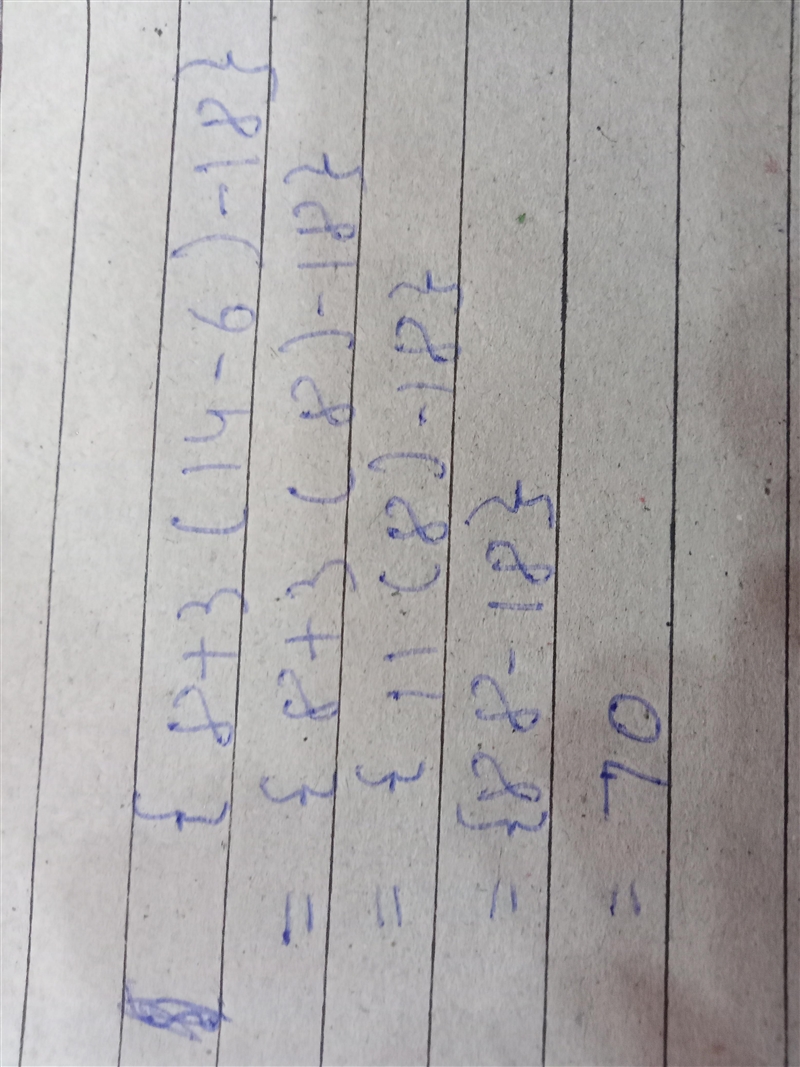 { 8+3 (14-6)-18}
= { 8+3 (8)-18}
= { 11 (8)-18}
= {88-18}
= 70